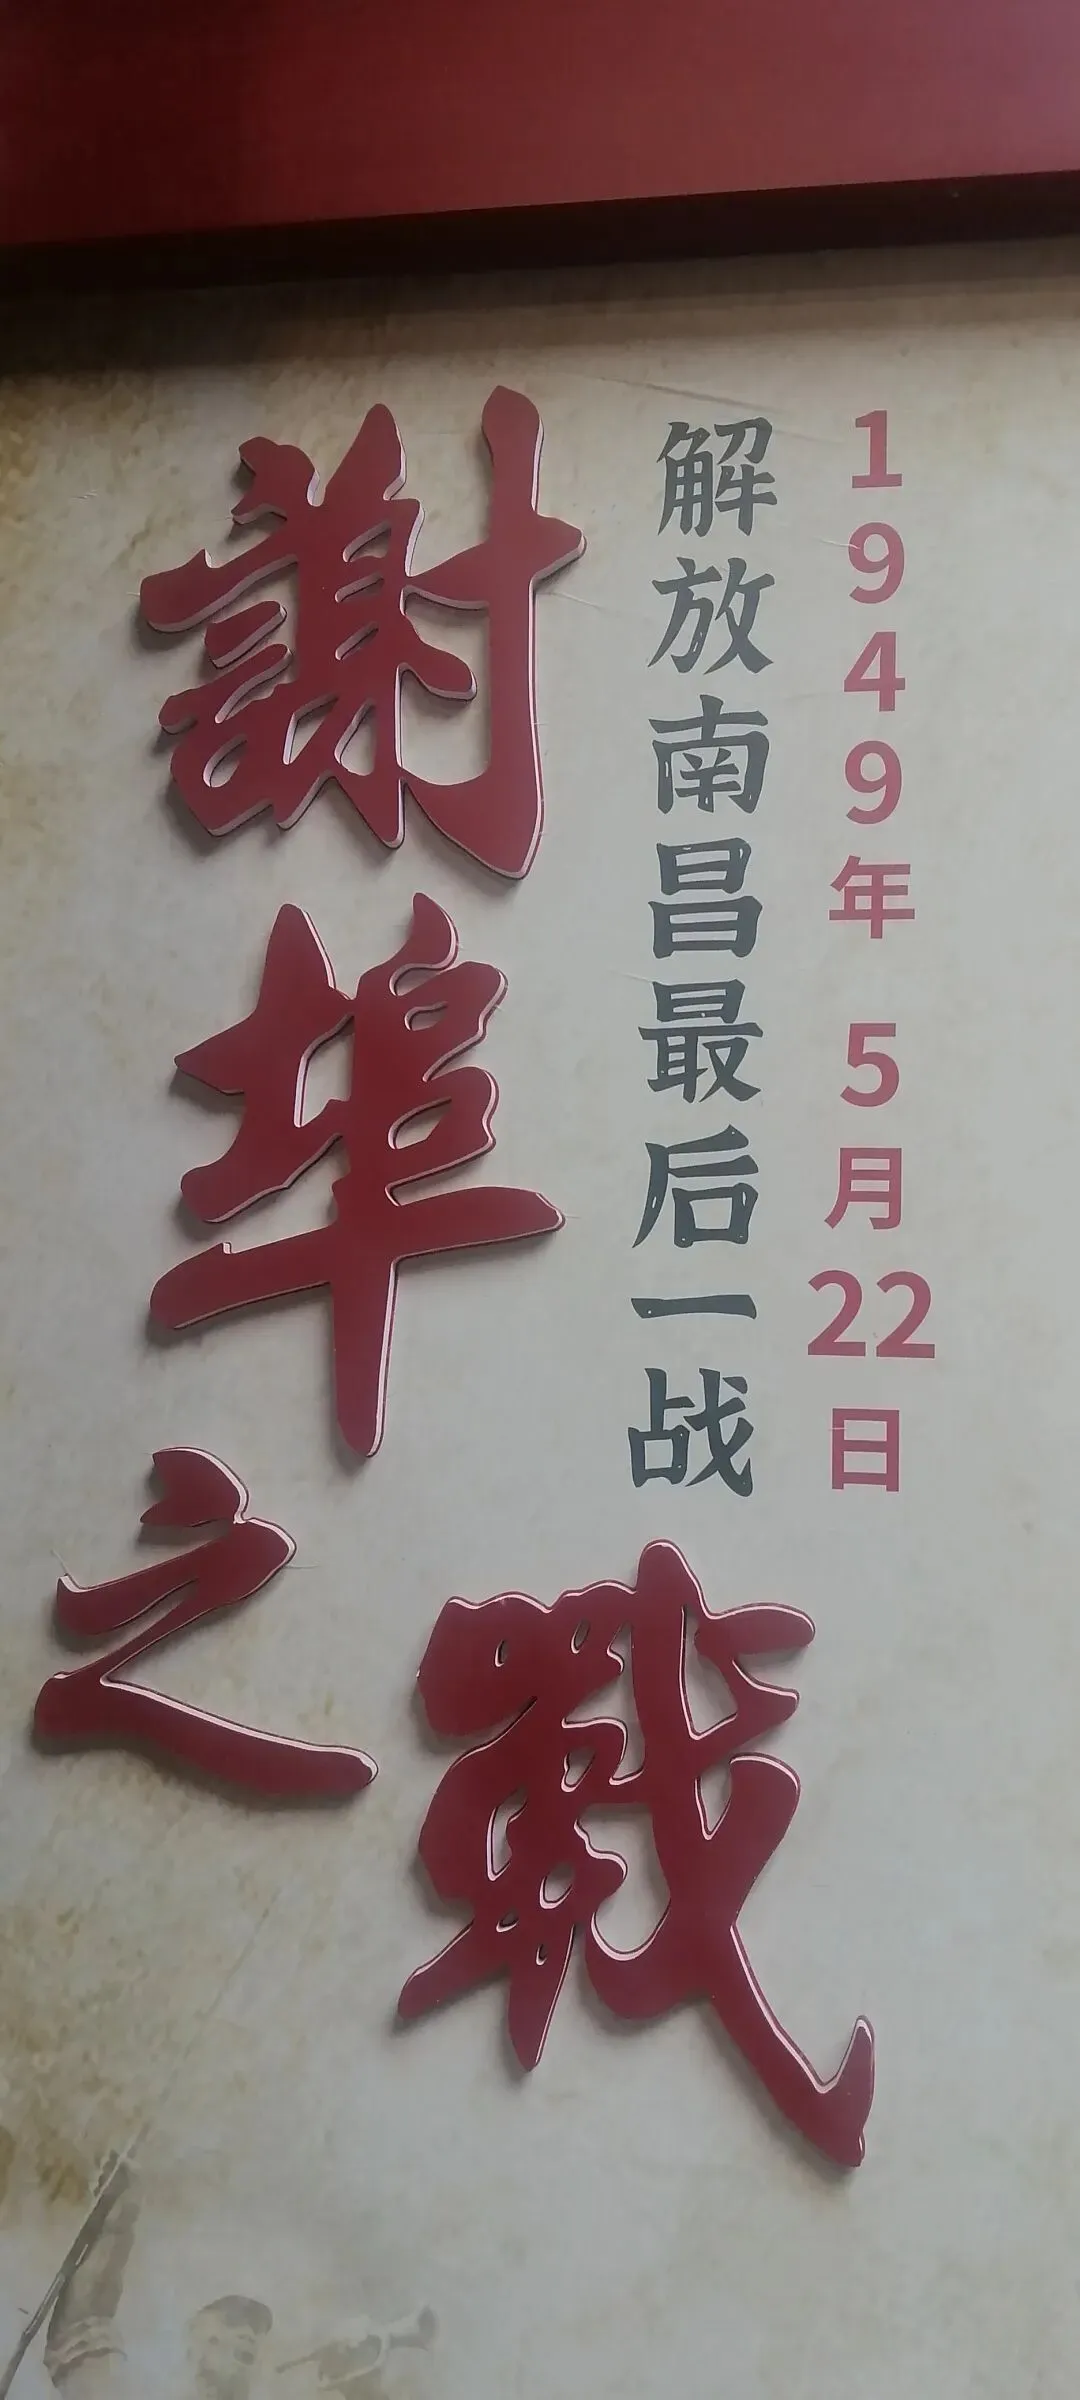 1949年 5月22日
解放南昌最后一战
謝埠之戰